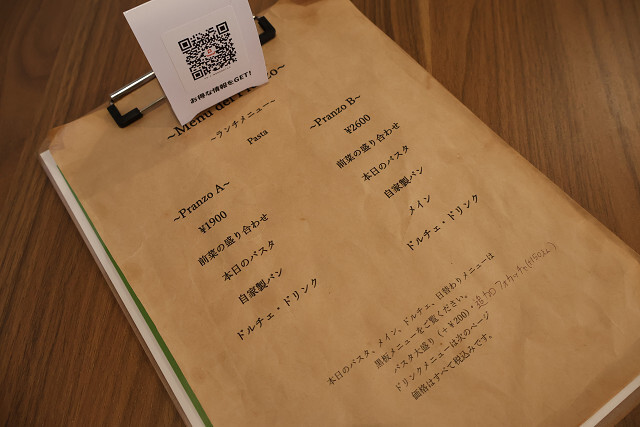 お得な情報をGET!
~Menu del Pranzo~
~ランチメニュー~
Pasta
~Pranzo A~
¥1900
前菜の盛り合わせ
本日のパスタ
自家製パン
ドルチェ・ドリンク
~Pranzo B~
¥2600
前菜の盛り合わせ
本日のパスタ
自家製パン
メイン
ドルチェ・ドリンク
本日のパスタ、メイン、ドルチェ、日替わりメニューは
黒板メニューをご覧ください。
パスタ大盛り(+¥200)・追加フォカッチャ(+150
ドリンクメニューは次のページ
価格はすべて税込みです。